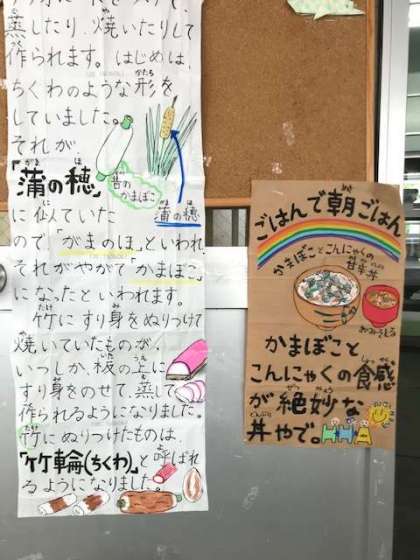 蒸したり、焼いたりして
作られます。はじめは、
ちくわのような形を
していました。
それが
「蒲の穂」
に似ていた
ので「がまのほ」といわれ
それがやがて「かまぼこ」
になったといわれます。
竹にすり身をぬりつけて
焼いていたものが、
いつしか、板の上に
すり身をのせて、蒸して
作られるようになりました。
竹にぬりつけたものは、
「竹輪(ちくわ)」と呼ばれ
るようになりました。
昔の
かまぼこ
蒲の穂
ごはんで朝ごはん
かまぼことこんにゃくの
甘辛丼
おみそしる
かまぼこと
こんにゃくの食感
が絶妙な
丼やで。